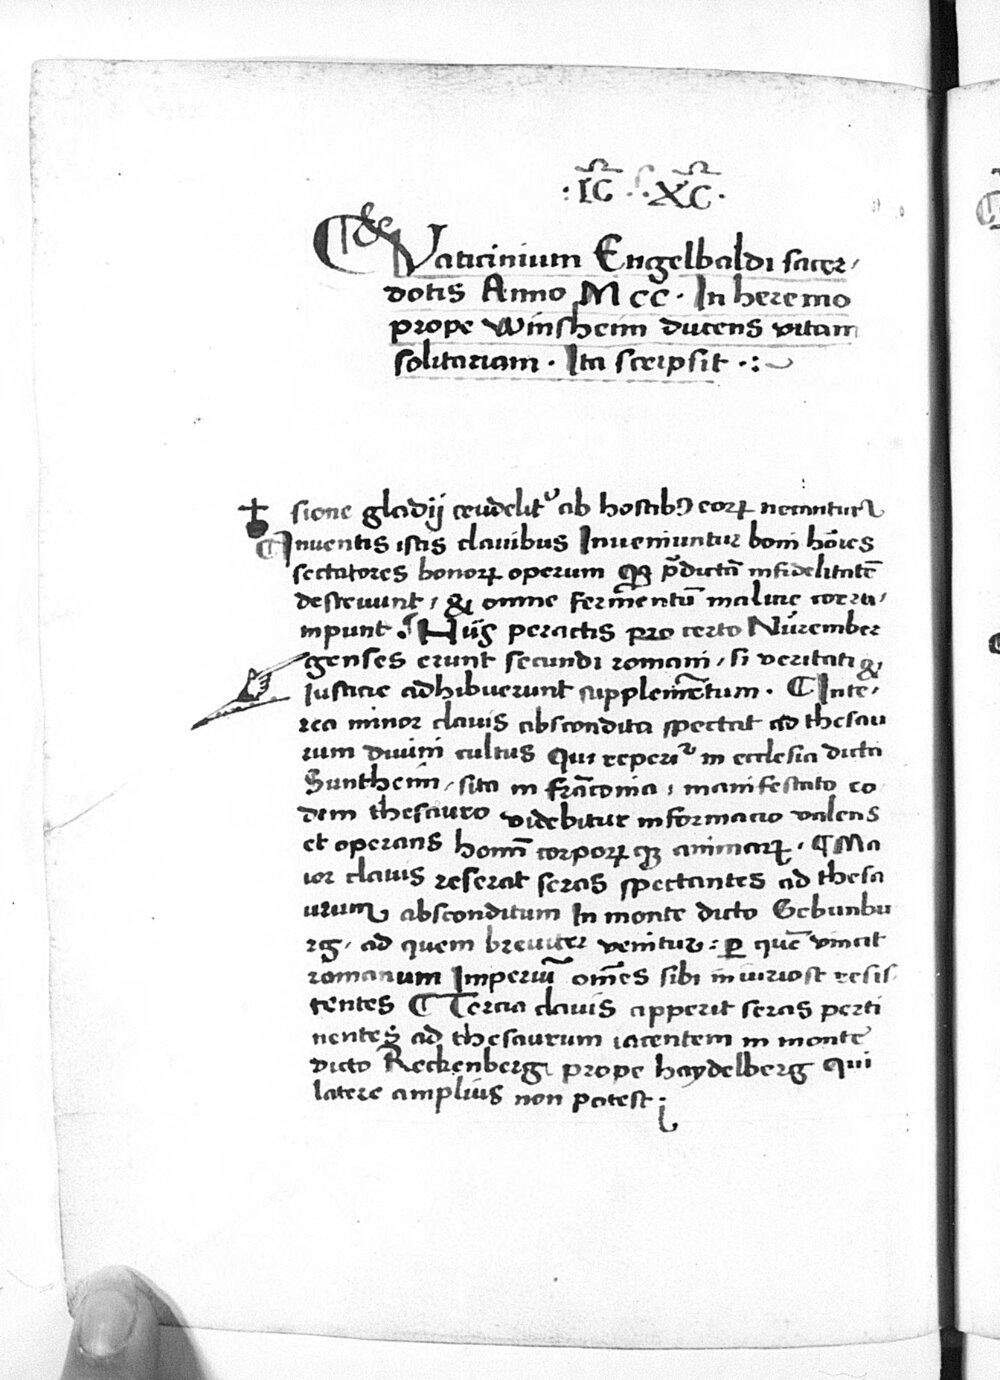 ·IC· ·XC·
Vaticinium Engelbaldi sacer,
dotis Anno MCC · In heremo
prope Winsheim ducens vitam
solitariam · Ita scripsit ·:~
sione gladij crudelit᷑ ab hostibꝰ eorꝝ necantur
Inventis istis clavibus Inveniuntur boni hōīes
sectatores honorꝝ operum qꝫ p̄dictā infidelitatē
destruunt, & omne fermentū malicie corru,
mpunt · Hijs peractis pro certo Nurember
genses erunt secundi romani, si veritati &
Iusticie adhibuerunt supplemētum · Inte,
rea minor clavis abscondita spectat ad thesau
rum divini cultus Qui reperit᷑ in ecclesia dicta
Suntheim, sita in frāconia, manifestato eo
dem thesauro videbitur informacio valens
et operans homī corporꝝ qꝫ animarꝝ · Ma
ior clavis reserat seras spectantes ad thesa
urum absconditum In monte dicto Gebunbu
rg, ad quem breviter venitur: ꝑ quē vincit
romanum Imperiū om̄es sibi iniuriose resis
tentes Tercia clavis apperit seras perti
nentes ad thesaurum iacentem in monte
dicto Reckenberg prope haydelberg Qui
latere amplius non potest ·